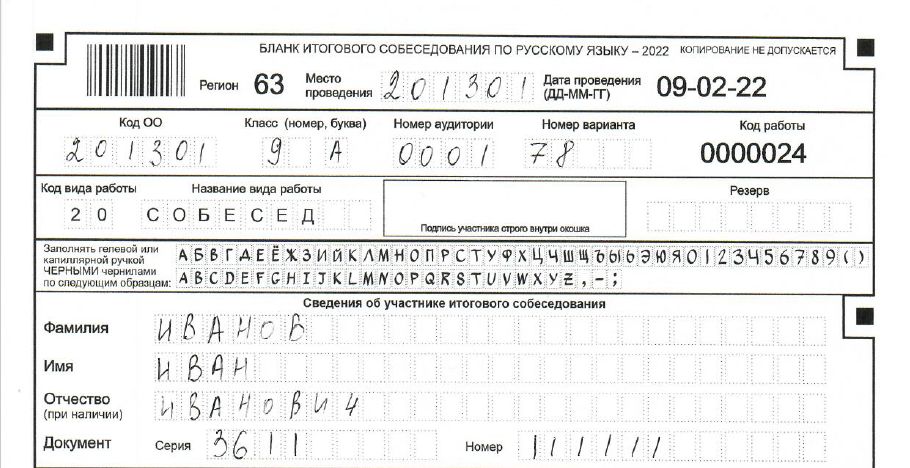 БЛАНК ИТОГОВОГО СОБЕСЕДОВАНИЯ ПО РУССКОМУ ЯЗЫКУ – 2022 КОПИРОВАНИЕ НЕ ДОПУСКАЕТСЯ
Регион 63 Место проведения 201301 Дата проведения (ДД-ММ-ГГ) 09-02-22
Код ОО Класс (номер, буква) Номер аудитории Номер варианта Код работы
201301 9 А 0001 78 0000024
Код вида работы Название вида работы Резерв
20 СОБЕСЕД
Подпись участника строго внутри окошка
Заполнять гелевой или капиллярной ручкой ЧЕРНЫМИ чернилами по следующим образцам:
АБВГДЕЁЖЗИЙКЛМНОПРСТУФХЦЧШЩЪЫЬЭЮЯ0123456789()
ABCDEFGHIJKLMNOPQRSTUVWXYZ,-;
Сведения об участнике итогового собеседования
Фамилия ИВАНОВ
Имя ИВАН
Отчество (при наличии) ИВАНОВИЧ
Документ Серия 3611 Номер 111111